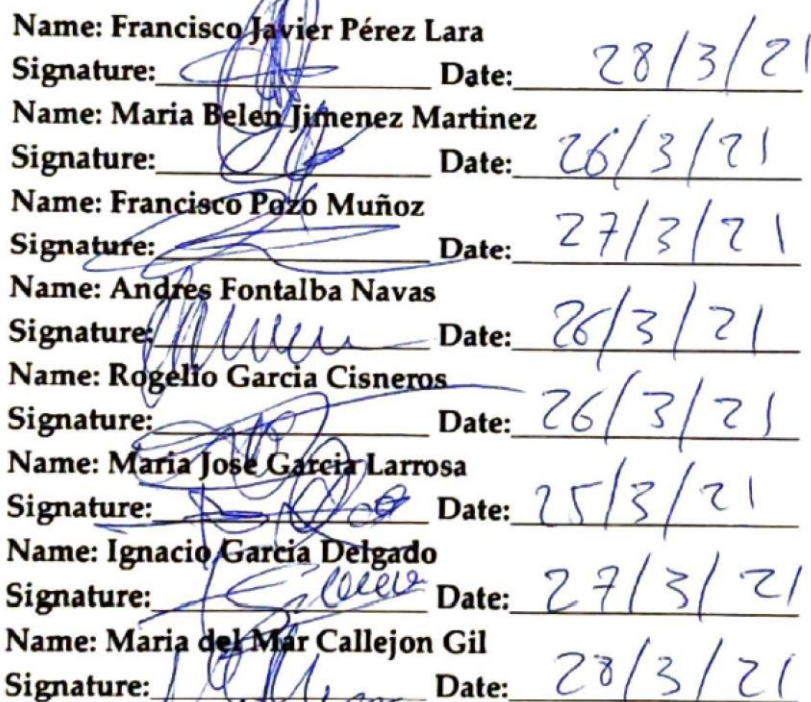 Name: Francisco Javier Pérez Lara
Signature: Date: 28/3/21
Name: Maria Belen Jimenez Martinez
Signature: Date: 26/3/21
Name: Francisco Pozo Muñoz
Signature: Date: 27/3/21
Name: Andres Fontalba Navas
Signature: Date: 26/3/21
Name: Rogelio Garcia Cisneros
Signature: Date: 26/3/21
Name: Maria José Garcia Larrosa
Signature: Date: 25/3/21
Name: Ignacio Garcia Delgado
Signature: Date: 27/3/21
Name: Maria del Mar Callejon Gil
Signature: Date: 28/3/21